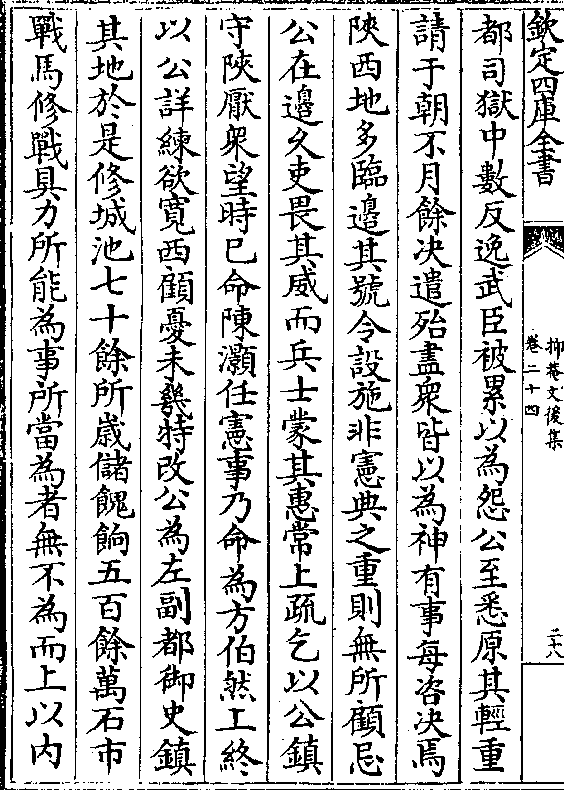 欽定四庫全書
抑菴文後集
卷二十四
二十八
都司獄中數反逸武臣被累以為怨公至悉原其輕重
請于朝不月餘決遣殆盡衆皆以為神有事每咨決焉
陜西地多臨邉其號令設施非憲典之重則無所顧忌
公在邉乆吏畏其威而兵士蒙其惠常上疏乞以公鎮
守陜厭衆望時已命陳灝任憲事乃命為方伯然上終
以公詳練欲寛西顧憂未幾特改公為左副都御史鎮
其地於是修城池七十餘所歳儲餽餉五百餘萬石市
戰馬修戰具力所能為事所當為者無不為而上以内